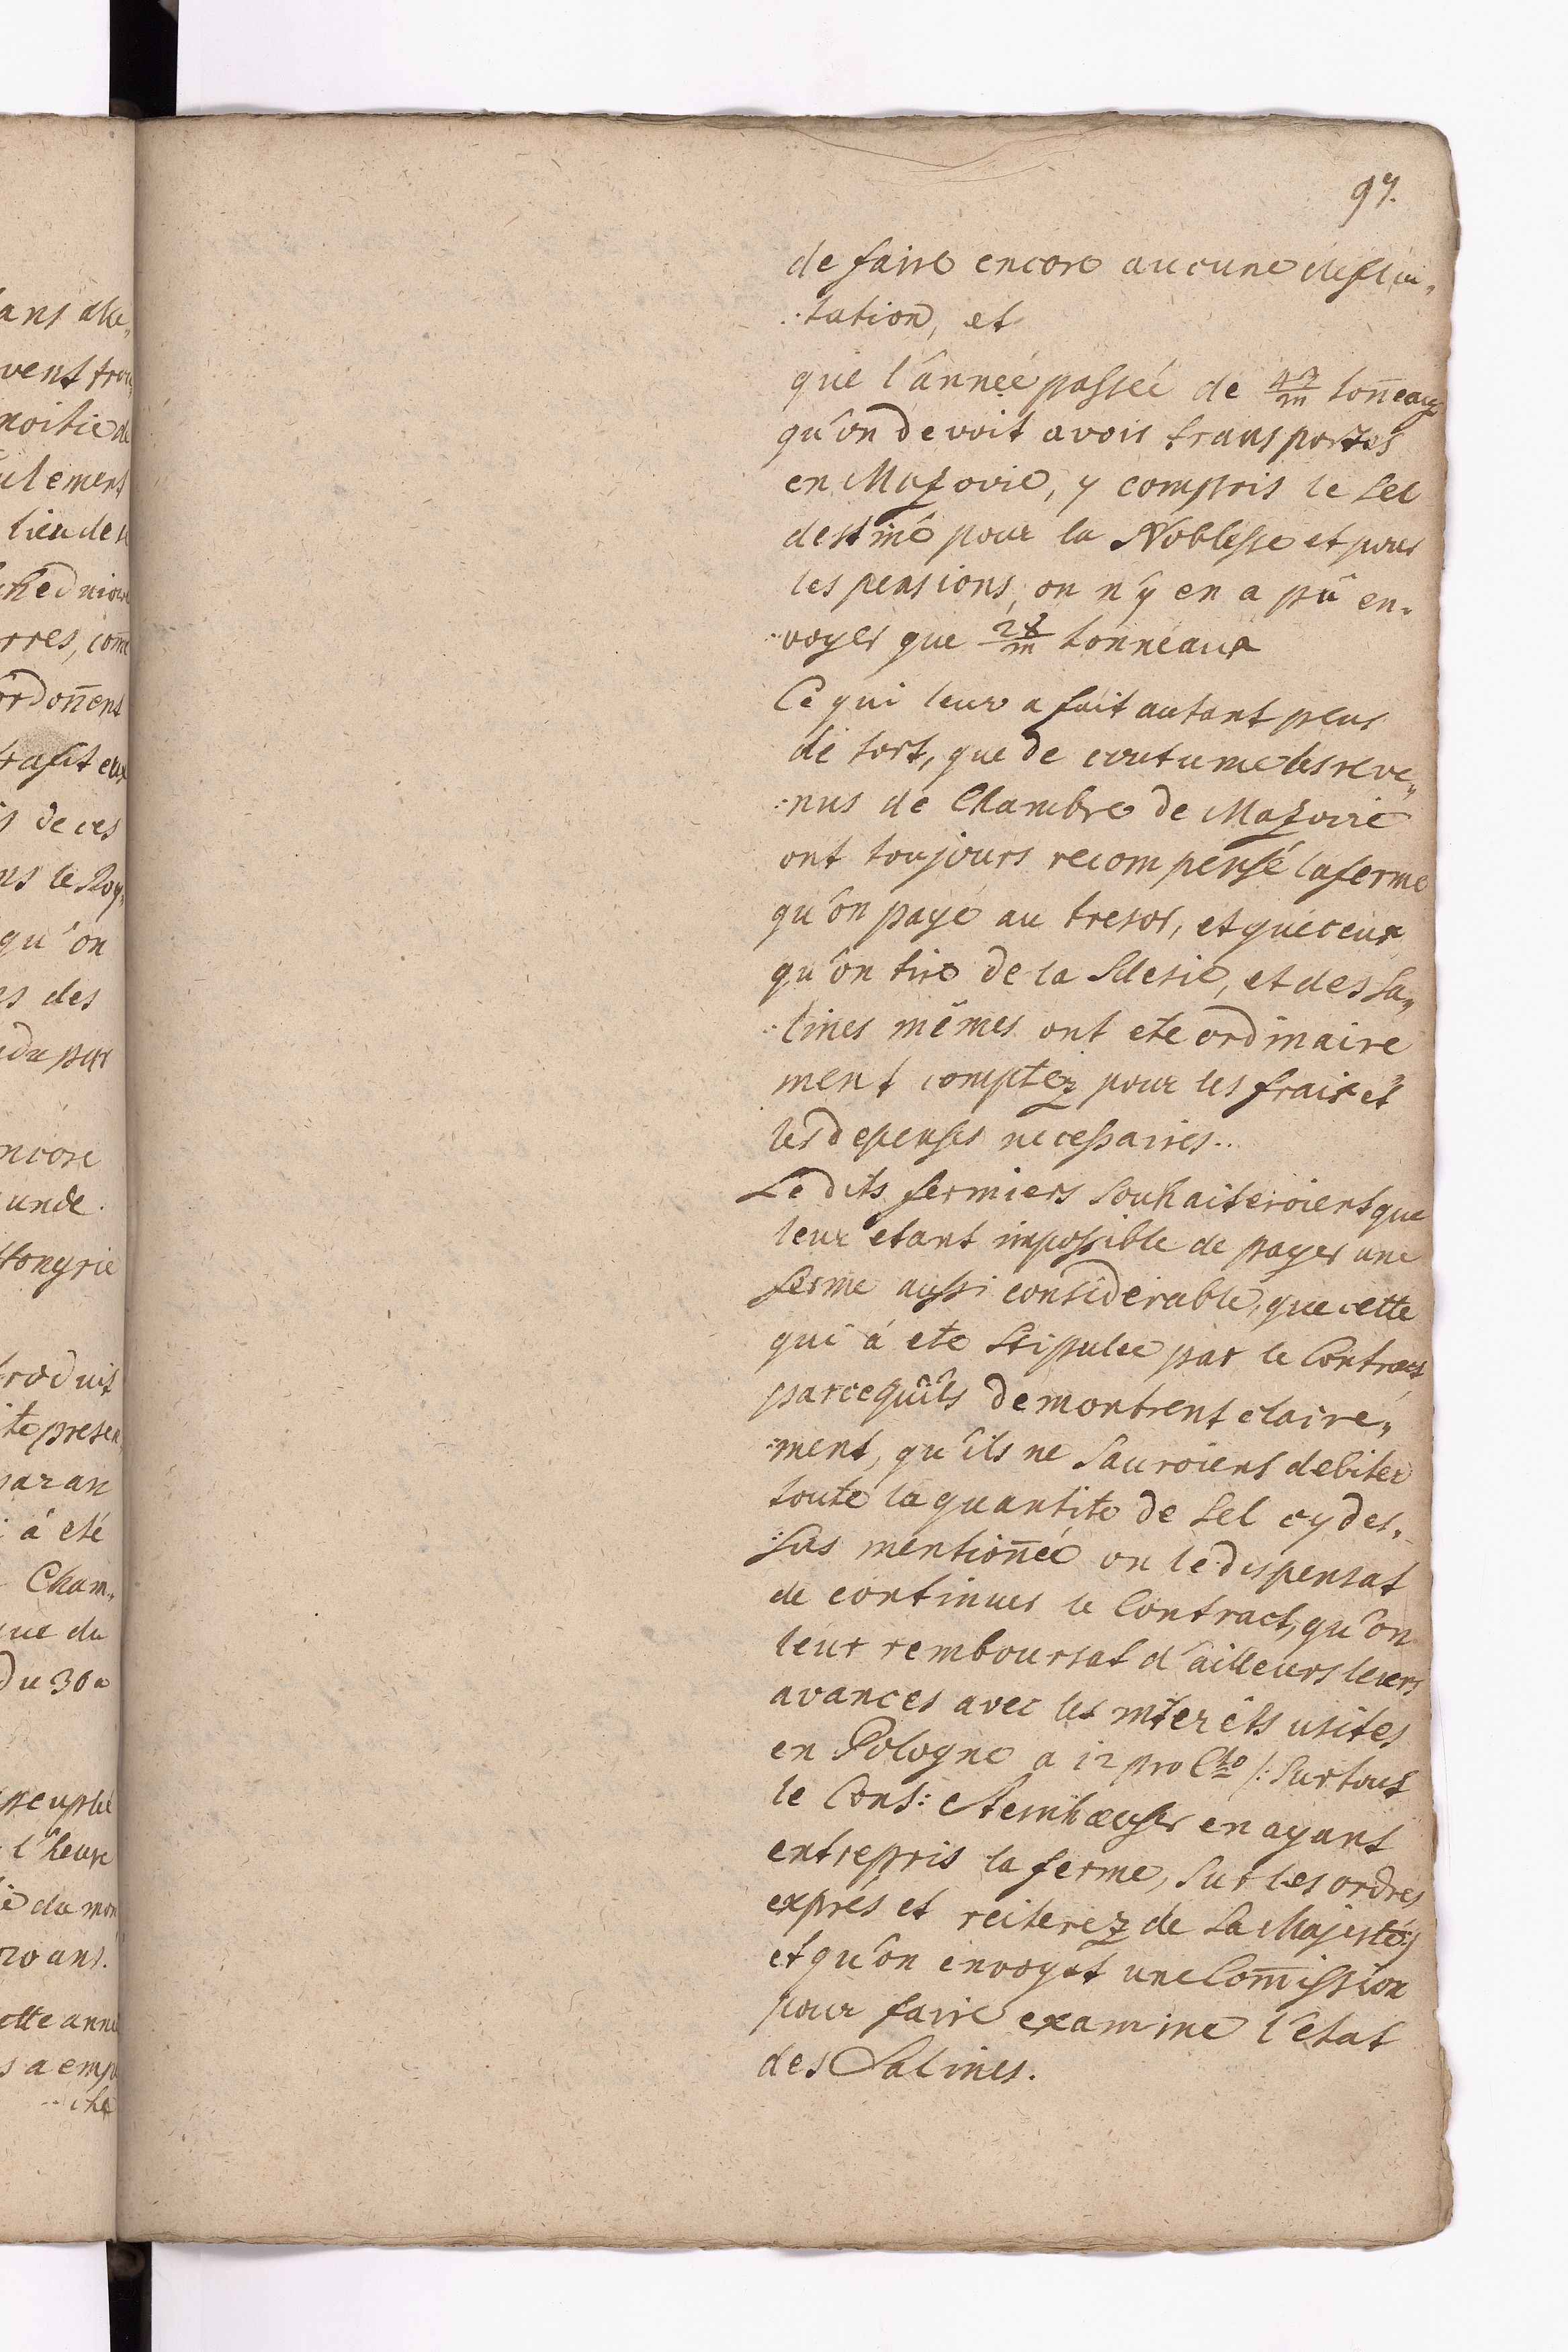 97.
de faire encore aucune
:tation, et
que l'année passée de 42/m toñeaux
qu'on devoit avoir transportes
en Mazovie, y compris le sel
destiné pour la Noblesse et pour
les pensions, on n'y en a pû en-
:voyer que 28/m tonneaux
Ce qui leur a fait autant plus
de tort, que de coutume les reve„
:nus de Chambre de Mazovie
ont toujours recompensé la ferme
qu'on paye au tresor, et que ceux
qu'on tire de la Silesie, et des Sa„
:lines mêmes ont ete ordinaire
ment comptez pour les frais et
les depenses necessaires..
Le dits fermiers souhaiteroient que
leur etant impossible de payer une
ferme aussi considerable, que cette
qui á ete stipulee par le Contract,
parcequ'ils demontrent claire„
:ment, qu'ils ne sauroient debiter
toute la quantite de sel cy des„
:sus mentioñée on le dispensat
de continuer le Contract, qu'on
leur remboursat d'ailleurs leurs
avances avec les interêts usites
en Pologne a 12 pro Cto /: surtout
le Cons: Steinhæuser en ayant
entrepris la ferme, sur les ordres
exprés et reiterez de Sa Majesté:/
et qu'on envoyat une Com̃ission
pour faire examine l'etat
des Salines.
ans
vent trou„
moitie de
ulement
lieu de
rres, com̃e
ordoñent
s de ces
ns le Roy„
qu'on
es des
ncore
unde.
Hongrie
produit
par an
á eté
Cham„
que du
du 30
peuple
l'heure
du mon
20 ans.
cette anné
s a emp